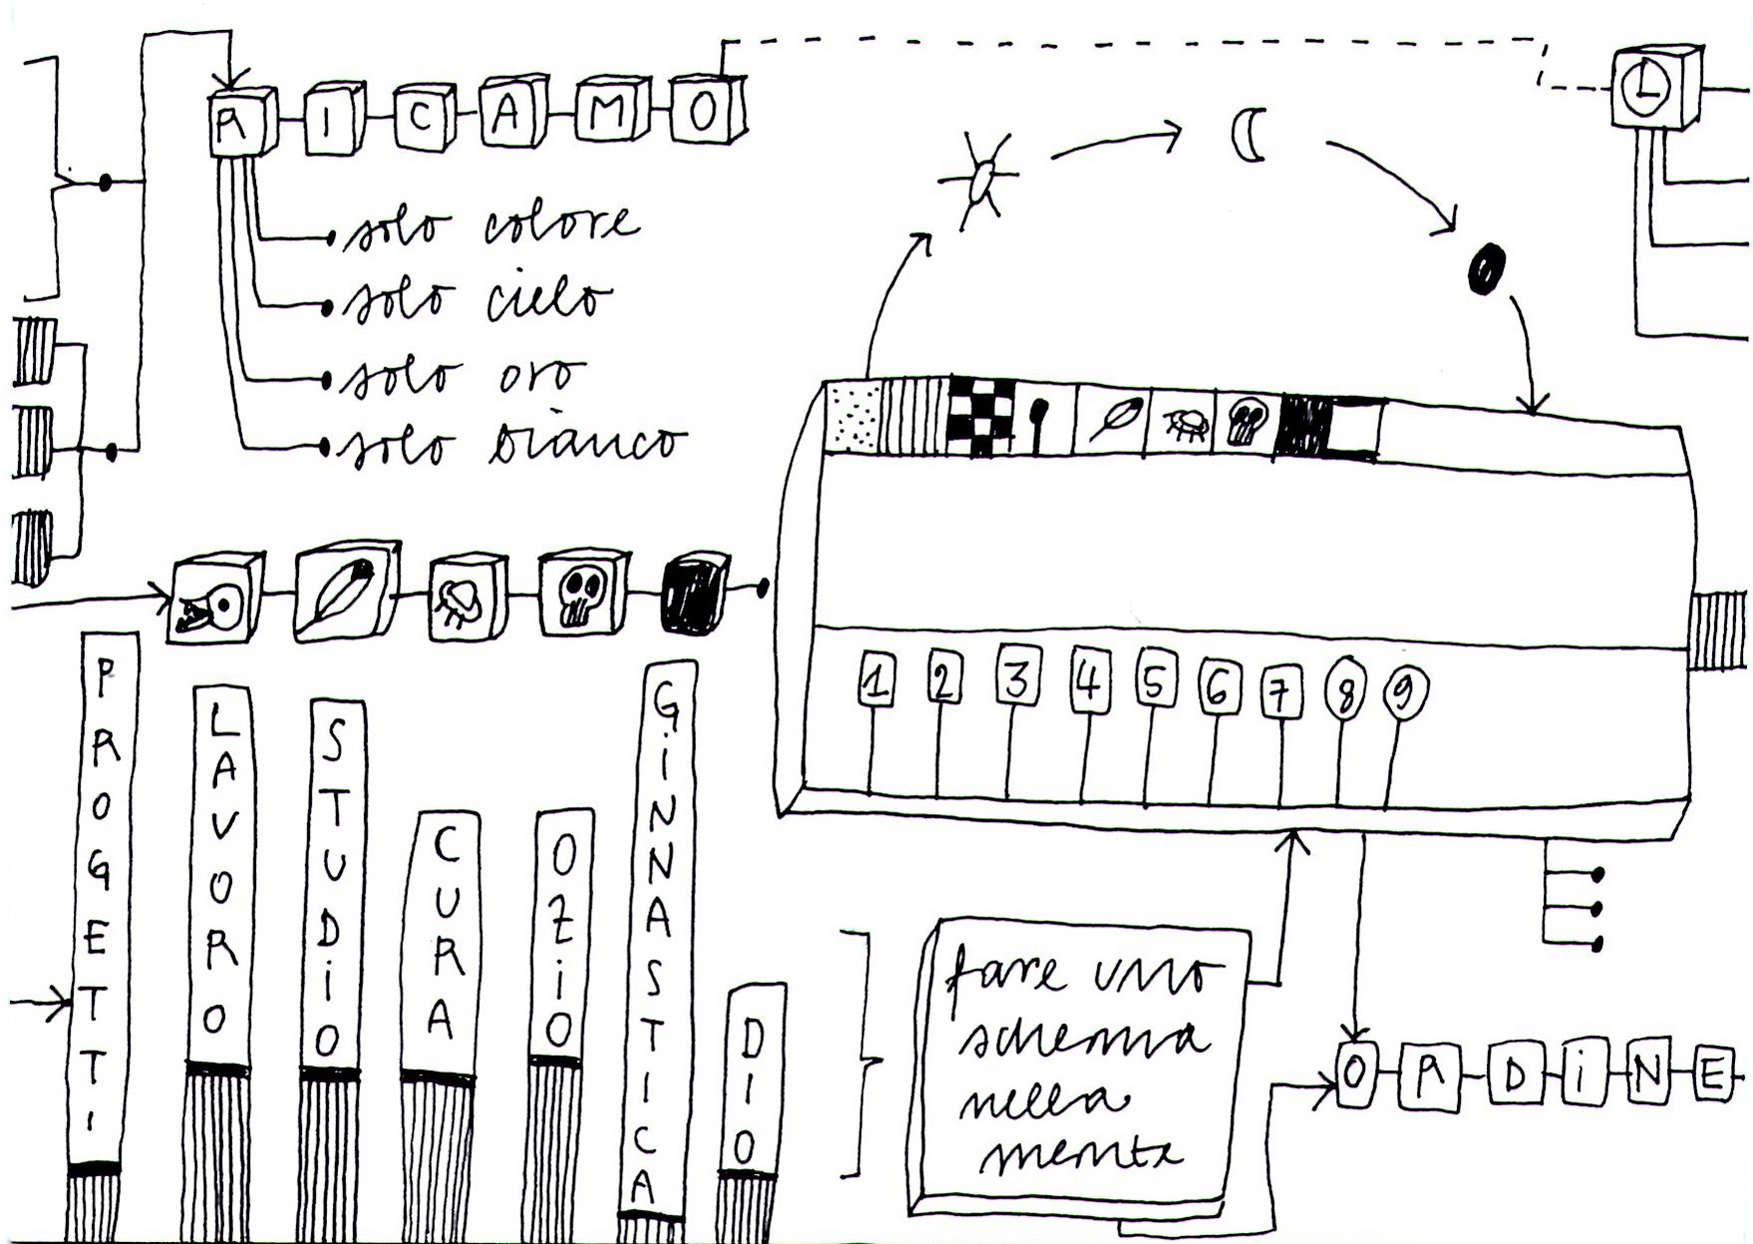 RICAMO
solo colore
solo cielo
solo oro
solo bianco
PROGETTI
LAVORO
STUDiO
CURA
OZiO
GiNNASTICA
DIO
1 2 3 4 5 6 7 8 9
fare uno
schema
nella
mente
ORDiNE